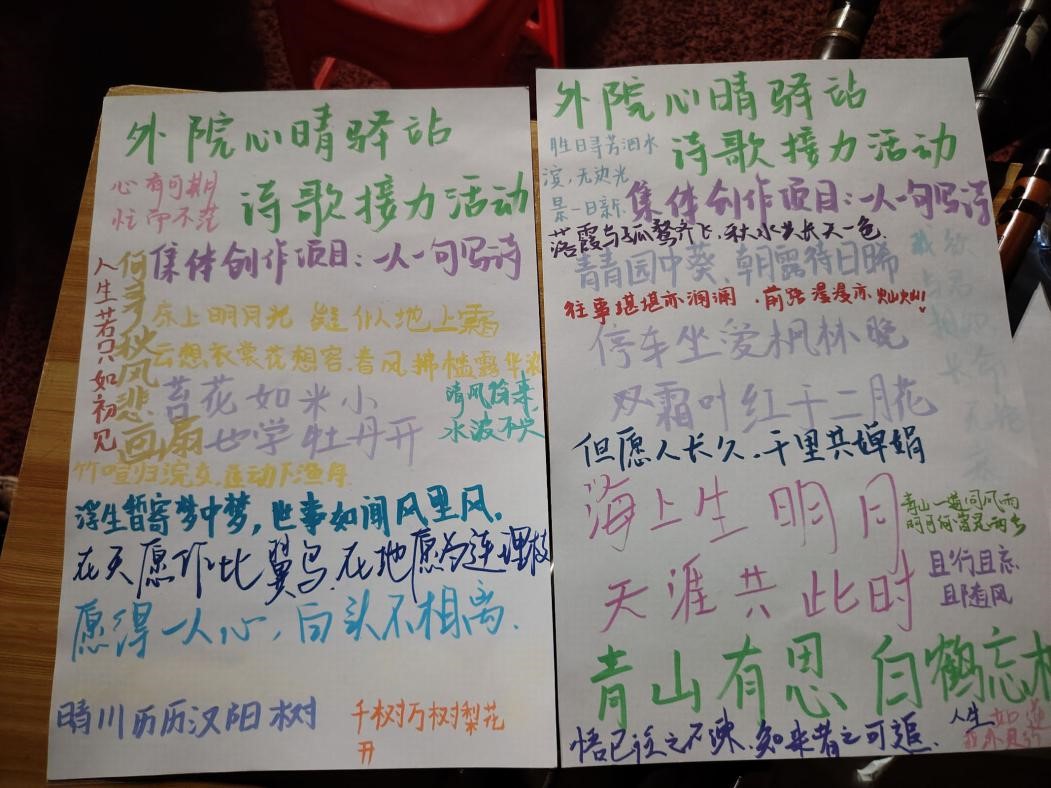 外院心晴驿站
诗歌接力活动
心有可期
忙而不茫
集体创作项目:一人一句写诗
人生若只如初见
何事秋风悲画扇
床上明月光 疑似地上霜
云想衣裳花想容.春风拂槛露华浓
苔花如米小
也学牡丹开
清风徐来,
水波不兴
竹喧归浣女,莲动下渔舟
浮生暂寄梦中梦,世事如闻风里风.
在天愿作比翼鸟.在地愿为连理枝
愿得一人心,白头不相离.
晴川历历汉阳树
千树万树梨花
开
外院心晴驿站
诗歌接力活动
胜日寻芳泗水
滨,无边光
景一日新.
集体创作项目:一人一句写诗
落霞与孤鹜齐飞.秋水共长天一色.
青青园中葵.朝露待日晞
往事堪堪亦澜澜.前路漫漫亦灿灿!
我欲
与君
相知
长命
无绝
衰
停车坐爱枫林晚
双霜叶红于二月花
但愿人长久.千里共婵娟
海上生明月
天涯共此时
青山一道同风雨
明月何曾是两乡
且行且忘
且随风
青山有思 白鹤忘机
悟已往之不谏.知来者之可追.
人生如逆
旅 我亦是行